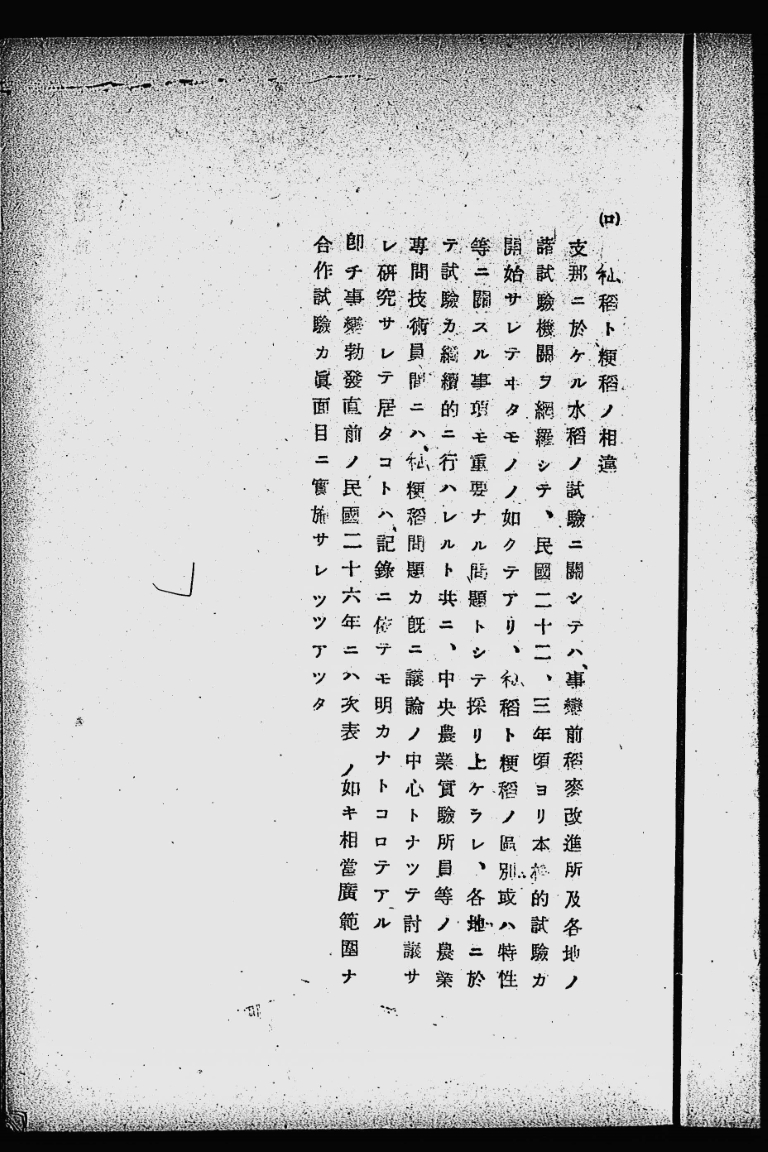 (ロ) 秈稻ト粳稻ノ相違
支那ニ於ケル水稻ノ試驗ニ關シテハ、事變前稻麥改進所及各地ノ
諸試驗機關ヲ網羅シテ、民國二十二、三年頃ヨリ本格的試驗カ
開始サレテヰタモノノ如クテアリ、秈稻ト粳稻ノ區別或ハ特性
等ニ關スル事項モ重要ナル問題トシテ採リ上ケラレ、各地ニ於
テ試驗カ繼續的ニ行ハレルト共ニ、中央農業實驗所員等ノ農業
專問技術員間ニハ、秈粳稻問題カ旣ニ議論ノ中心トナツテ討議サ
レ研究サレテ居タコトハ、記錄ニ依テモ明カナトコロテアル
卽チ事變勃發直前ノ民國二十六年ニハ次表ノ如キ相當廣範圍ナ
合作試驗カ眞面目ニ實施サレツツアツタ